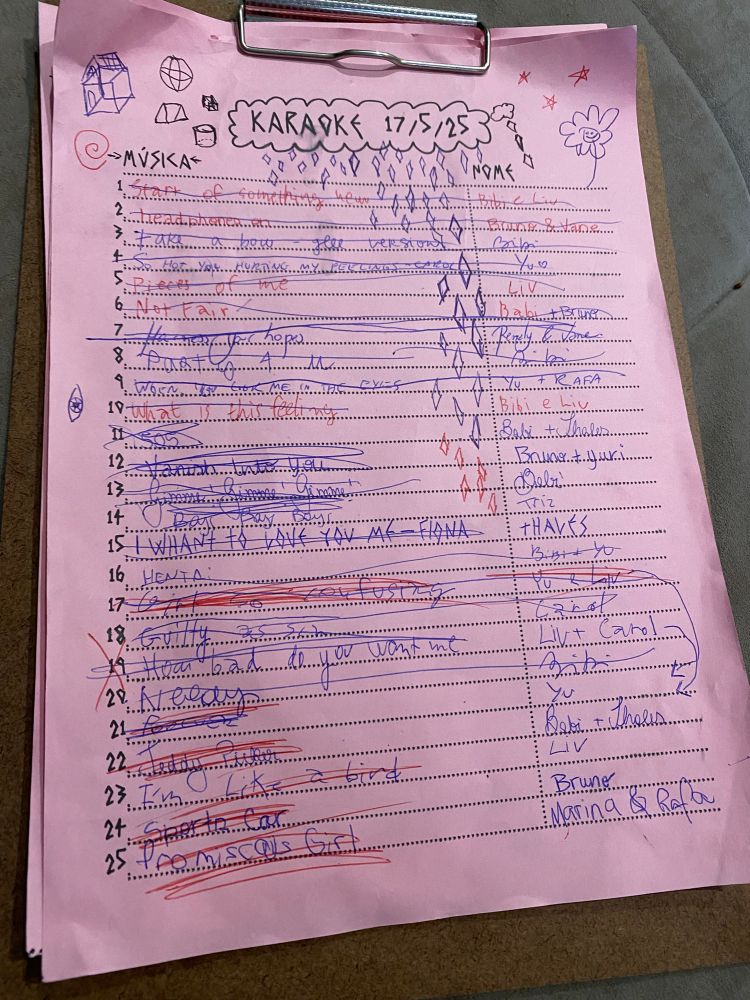 KARAOKE 17/5/25
→MÚSICA← NOME
1 Start of something new Bibi e Liv
2 headphones on Bruno & Vane
3 take a bow - glee version Bibi
4 SO HOT YOU HURTING MY FEELINGS - CAROL Yu
5 Pieces of me LIV
6 Not Fair Babi + Bruno
7 Harness your hopes & Vane
8 Party 4 u Bibi
9 WHEN YOU LOOK ME IN THE EYES Yu + RAFA
10 What is this feeling Bibi e Liv
11 SOS Babi + Thales
12 Vanish Into you Bruno + yuri
13 Gimme! Gimme! Gimme! Babi
14 Boys Boys Boys Triz
15 I WHANT TO LOVE YOU ME - FIONA +HAVES
16 HENTAI Bibi + Yu
17 Girl so confusing Yu e Liv
18 Guilty as sin Carol
19 How bad do you want me LIV + Carol
20 Needy Bibi
21 Yu
22 Teddy Picker Babi + Thales
23 I'm like a bird LIV
24 Sports Car Bruno
25 Promiscous Girl Marina & Rafba